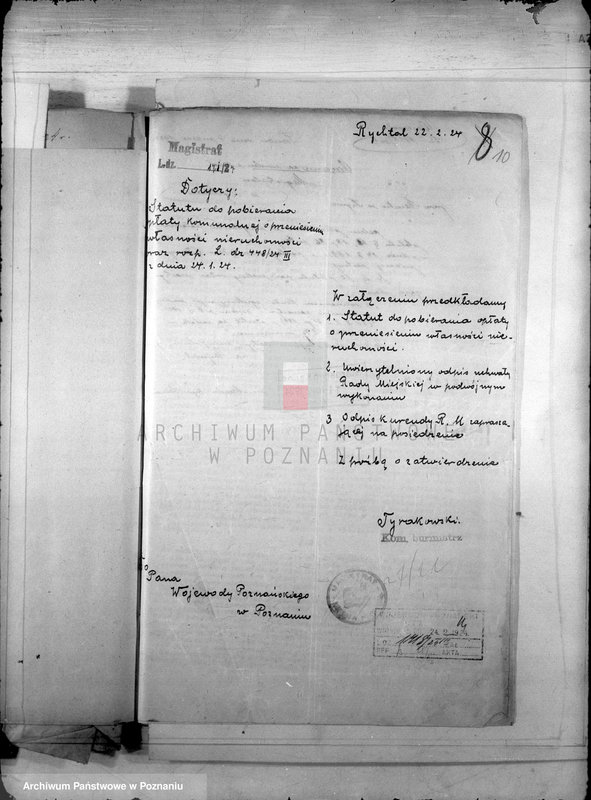 Rychtal 22. 2. 24
8
10
Magistrat
L.dz.
Dotyczy:
Statutu do pobierania
opłaty komunalnej o przeniesieniu
własności nieruchomości
oraz rozp. L. dz 448/24 III
z dnia 24. 1. 24.
W załączeniu przedkładamy
1. Statut do pobierania opłaty
o przeniesieniu własności nie-
ruchomości.
2. Uwierzytelniony odpis uchwały
Rady Miejskiej w podwójnym
wykonaniu
3 Odpis kurendy R. M zaprasza
jącej na posiedzenie
Z prośbą o zatwierdzenie
ARCHIWUM PAŃSTWOWE
W POZNANIU
Tyrakowski.
Kom. burmistrz
Do
Pana
Wojewody Poznańskiego
w Poznaniu
Archiwum Państwowe w Poznaniu